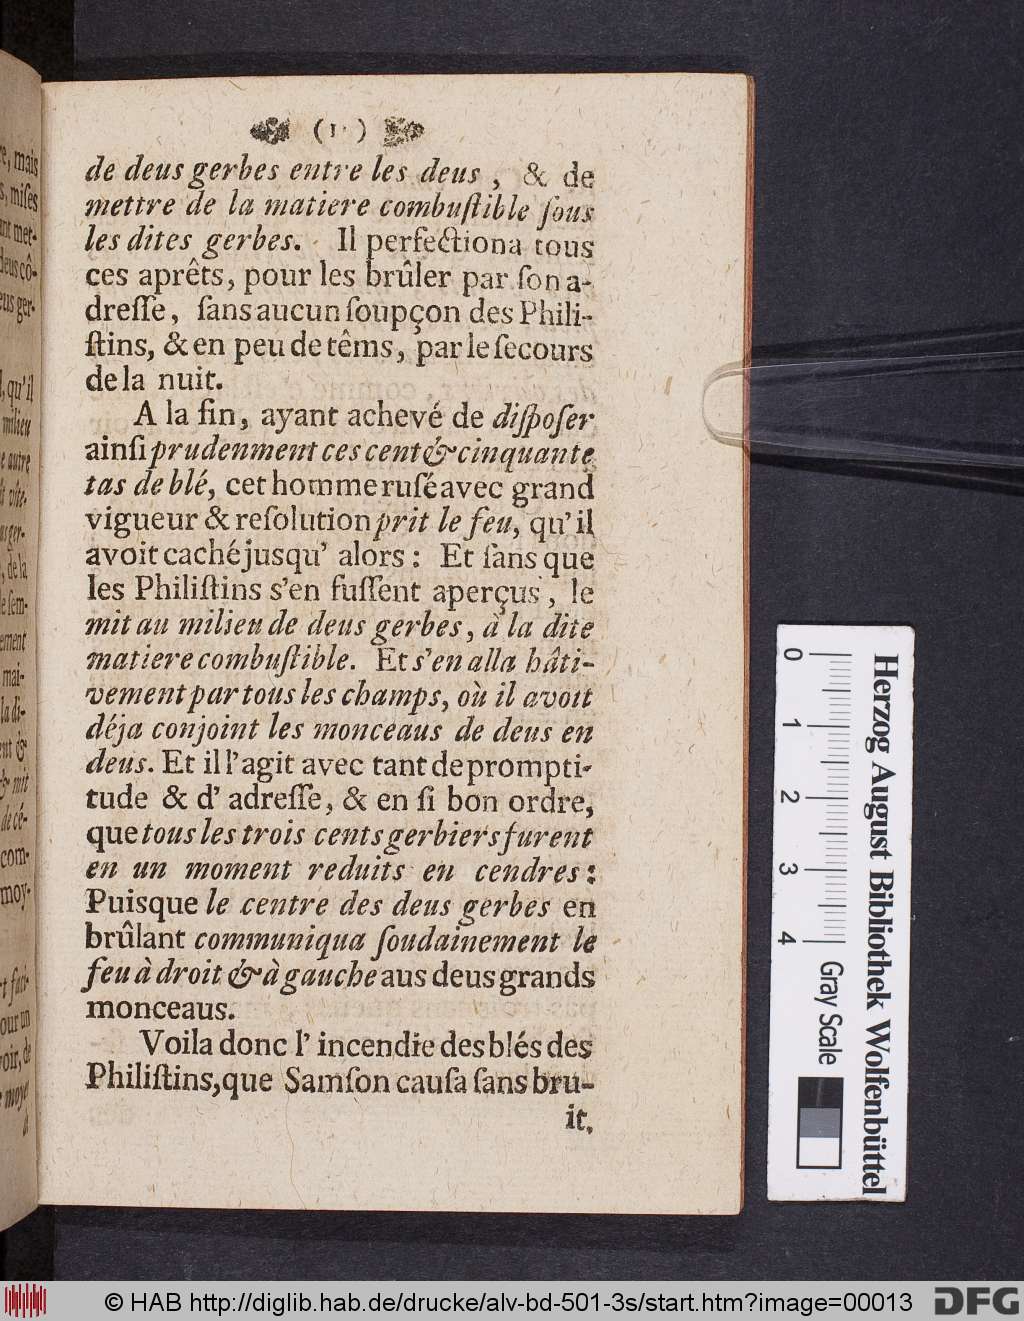 ( 1 )
de deus gerbes entre les deus , & de
mettre de la matiere combuſtible ſous
les dites gerbes. Il perfectiona tous
ces aprêts, pour les brûler par ſon a-
dreſſe, ſans aucun ſoupçon des Phili-
ſtins, & en peu de têms, par le ſecours
de la nuit.
A la fin, ayant achevé de diſpoſer
ainſi prudenment ces cent & cinquante
tas de blé, cet homme ruſé avec grand
vigueur & reſolution prit le feu, qu'il
avoit caché jusqu' alors : Et ſans que
les Philiſtins s'en fuſſent aperçus , le
mit au milieu de deus gerbes, à la dite
matiere combuſtible. Et s'en alla hâti-
vement par tous les champs, où il avoit
déja conjoint les monceaus de deus en
deus. Et il l'agit avec tant de prompti-
tude & d' adreſſe, & en ſi bon ordre,
que tous les trois cents gerbiers furent
en un moment reduits en cendres :
Puisque le centre des deus gerbes en
brûlant communiqua ſoudainement le
feu à droit & à gauche aus deus grands
monceaus.
Voila donc l' incendie des blés des
Philiſtins, que Samſon cauſa ſans bru-
it.
0 1 2 3 4
Gray Scale
Herzog August Bibliothek Wolfenbüttel
© HAB http://diglib.hab.de/drucke/alv-bd-501-3s/start.htm?image=00013
DFG